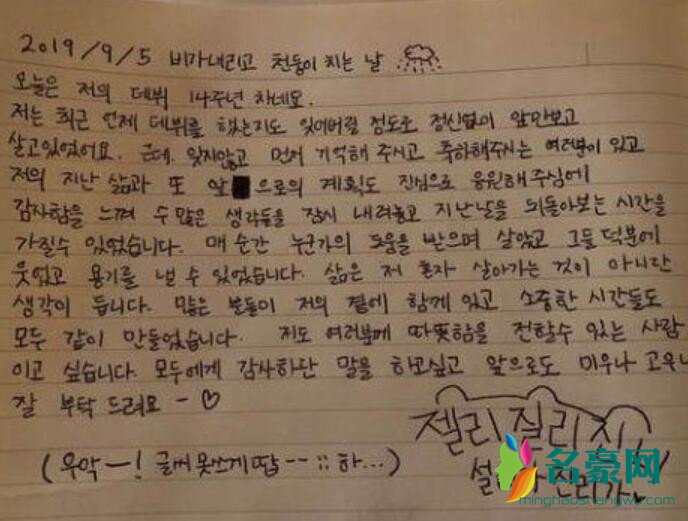 2019/9/5 비가내리고 천둥이 치는 날
오늘은 저의 데뷔 14주년 차네요.
저는 최근 언제 데뷔를 했는지도 잊어버릴 정도로 정신없이 앞만보고
살고있었어요. 근데. 잊지않고 먼저 기억해 주시고 축하해주시는 여러분이 있고
저의 지난 삶과 또 앞으로의 계획도 진심으로 응원해주심에
감사함을 느껴 수많은 생각들을 잠시 내려놓고 지난날을 뒤돌아보는 시간을
가질수 있었습니다. 매 순간 누군가의 도움을 받으며 살았고 그들덕분에
웃었고 용기를 낼 수 있었습니다. 삶은 저 혼자 살아가는 것이 아니란
생각이 듭니다. 많은 분들이 저의 곁에 함께 있고 소중한 시간들도
모두 같이 만들었습니다. 저도 여러분께 따뜻함을 전할수 있는 사람
이고 싶습니다. 모두에게 감사하단 말을 하고싶고 앞으로도 미우나 고우나
잘 부탁 드려요 - ♡
젤리 질리
(우악-! 글씨 못쓰게땁-- ;; 하...)
설 진리가
名豪网
minghaoshangwu.com